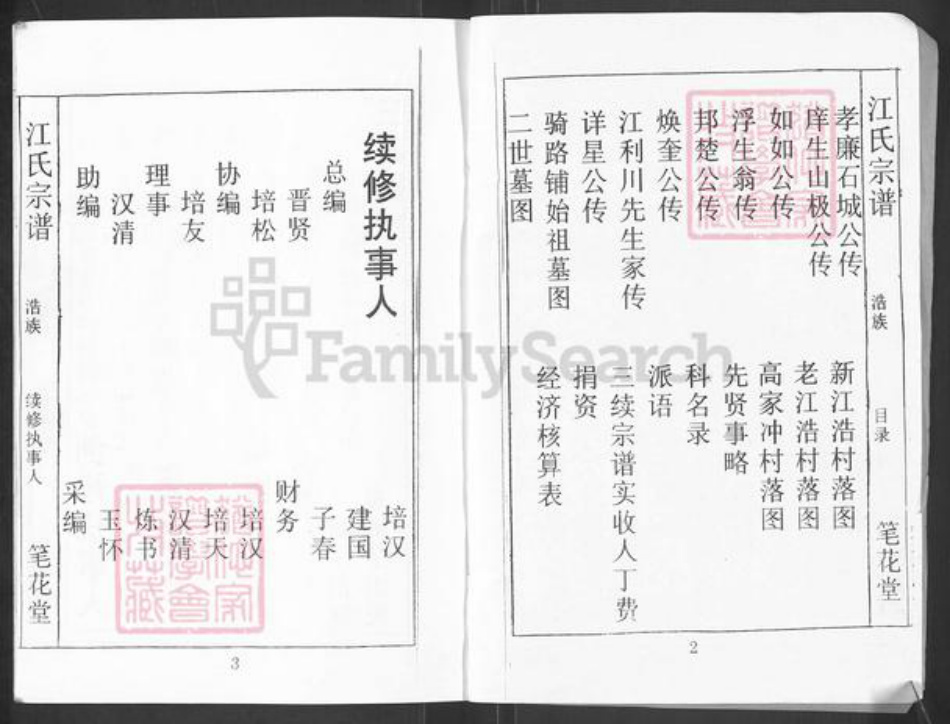 江氏宗谱
浩族
目录
笔花堂
孝廉石城公传
庠生山极公传
如如公传
浮生翁传
邦楚公传
焕奎公传
江利川先生家传
详星公传
骑路铺始祖墓图
二世墓图
新江浩村落图
老江浩村落图
高家冲村落图
先贤事略
科名录
派语
三续宗谱实收人丁费
捐资
经济核算表
2
续修执事人
总编
晋贤
培松
协编
培友
理事
汉清
助编
培汉
建国
子春
财务
培汉
培天
汉清
炼书
玉怀
采编
江氏宗谱
浩族
续修执事人
笔花堂
3
FamilySearch